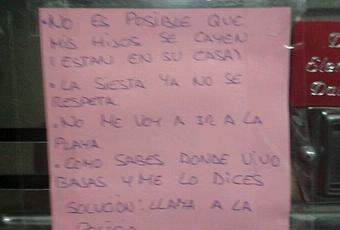 • NO ES POSIBLE QUE
MIS HIJOS SE CAYEN
(ESTAN EN SU CASA)
• LA SIESTA YA NO SE
RESPETA
• NO ME VOY A IR A LA
PLAYA
• COMO SABES DONDE VIVO
BAJAS Y ME LO DICES
SOLUCIÓN: LLAMA A LA